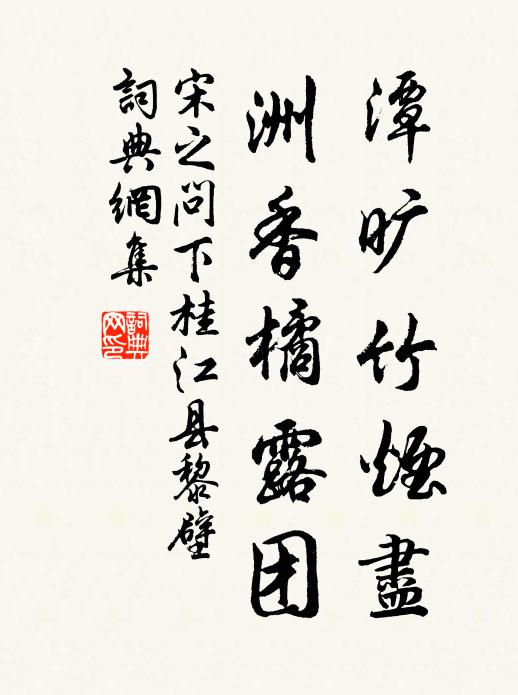 潭旷竹煙盡
洲香橘露团
宋之问下桂江县黎壁
詞典網集
詞典网印